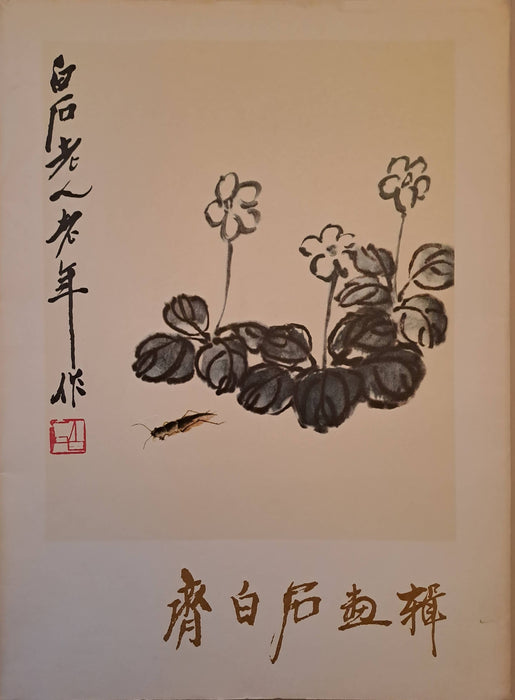 白石老人老年作
齊白石畫輯